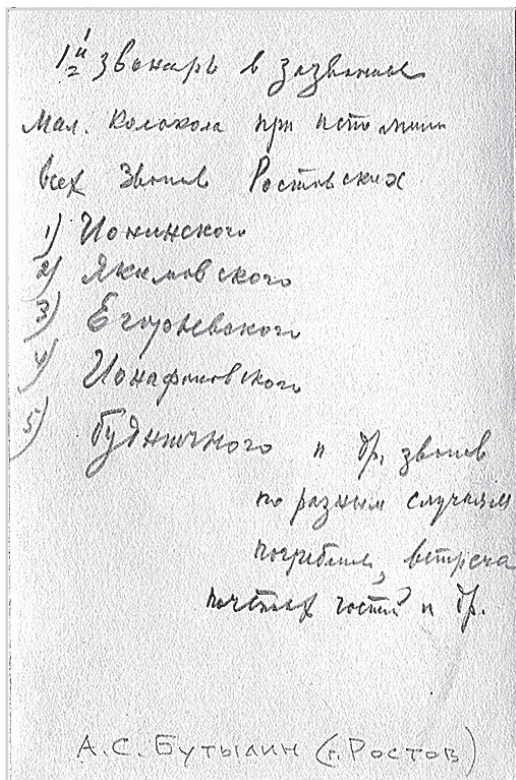 1й звонарь в зазвонные
мал. колокола при исполнении
всех звонов Ростовских
1) Ионинского
2) Якимовского
3) Егорьевского
4) Ионафановского
5) Будничного и др. звонов
по разным случаям
погребения, встреча
почётных гостей и др.
А.С. Бутылин (г. Ростов)